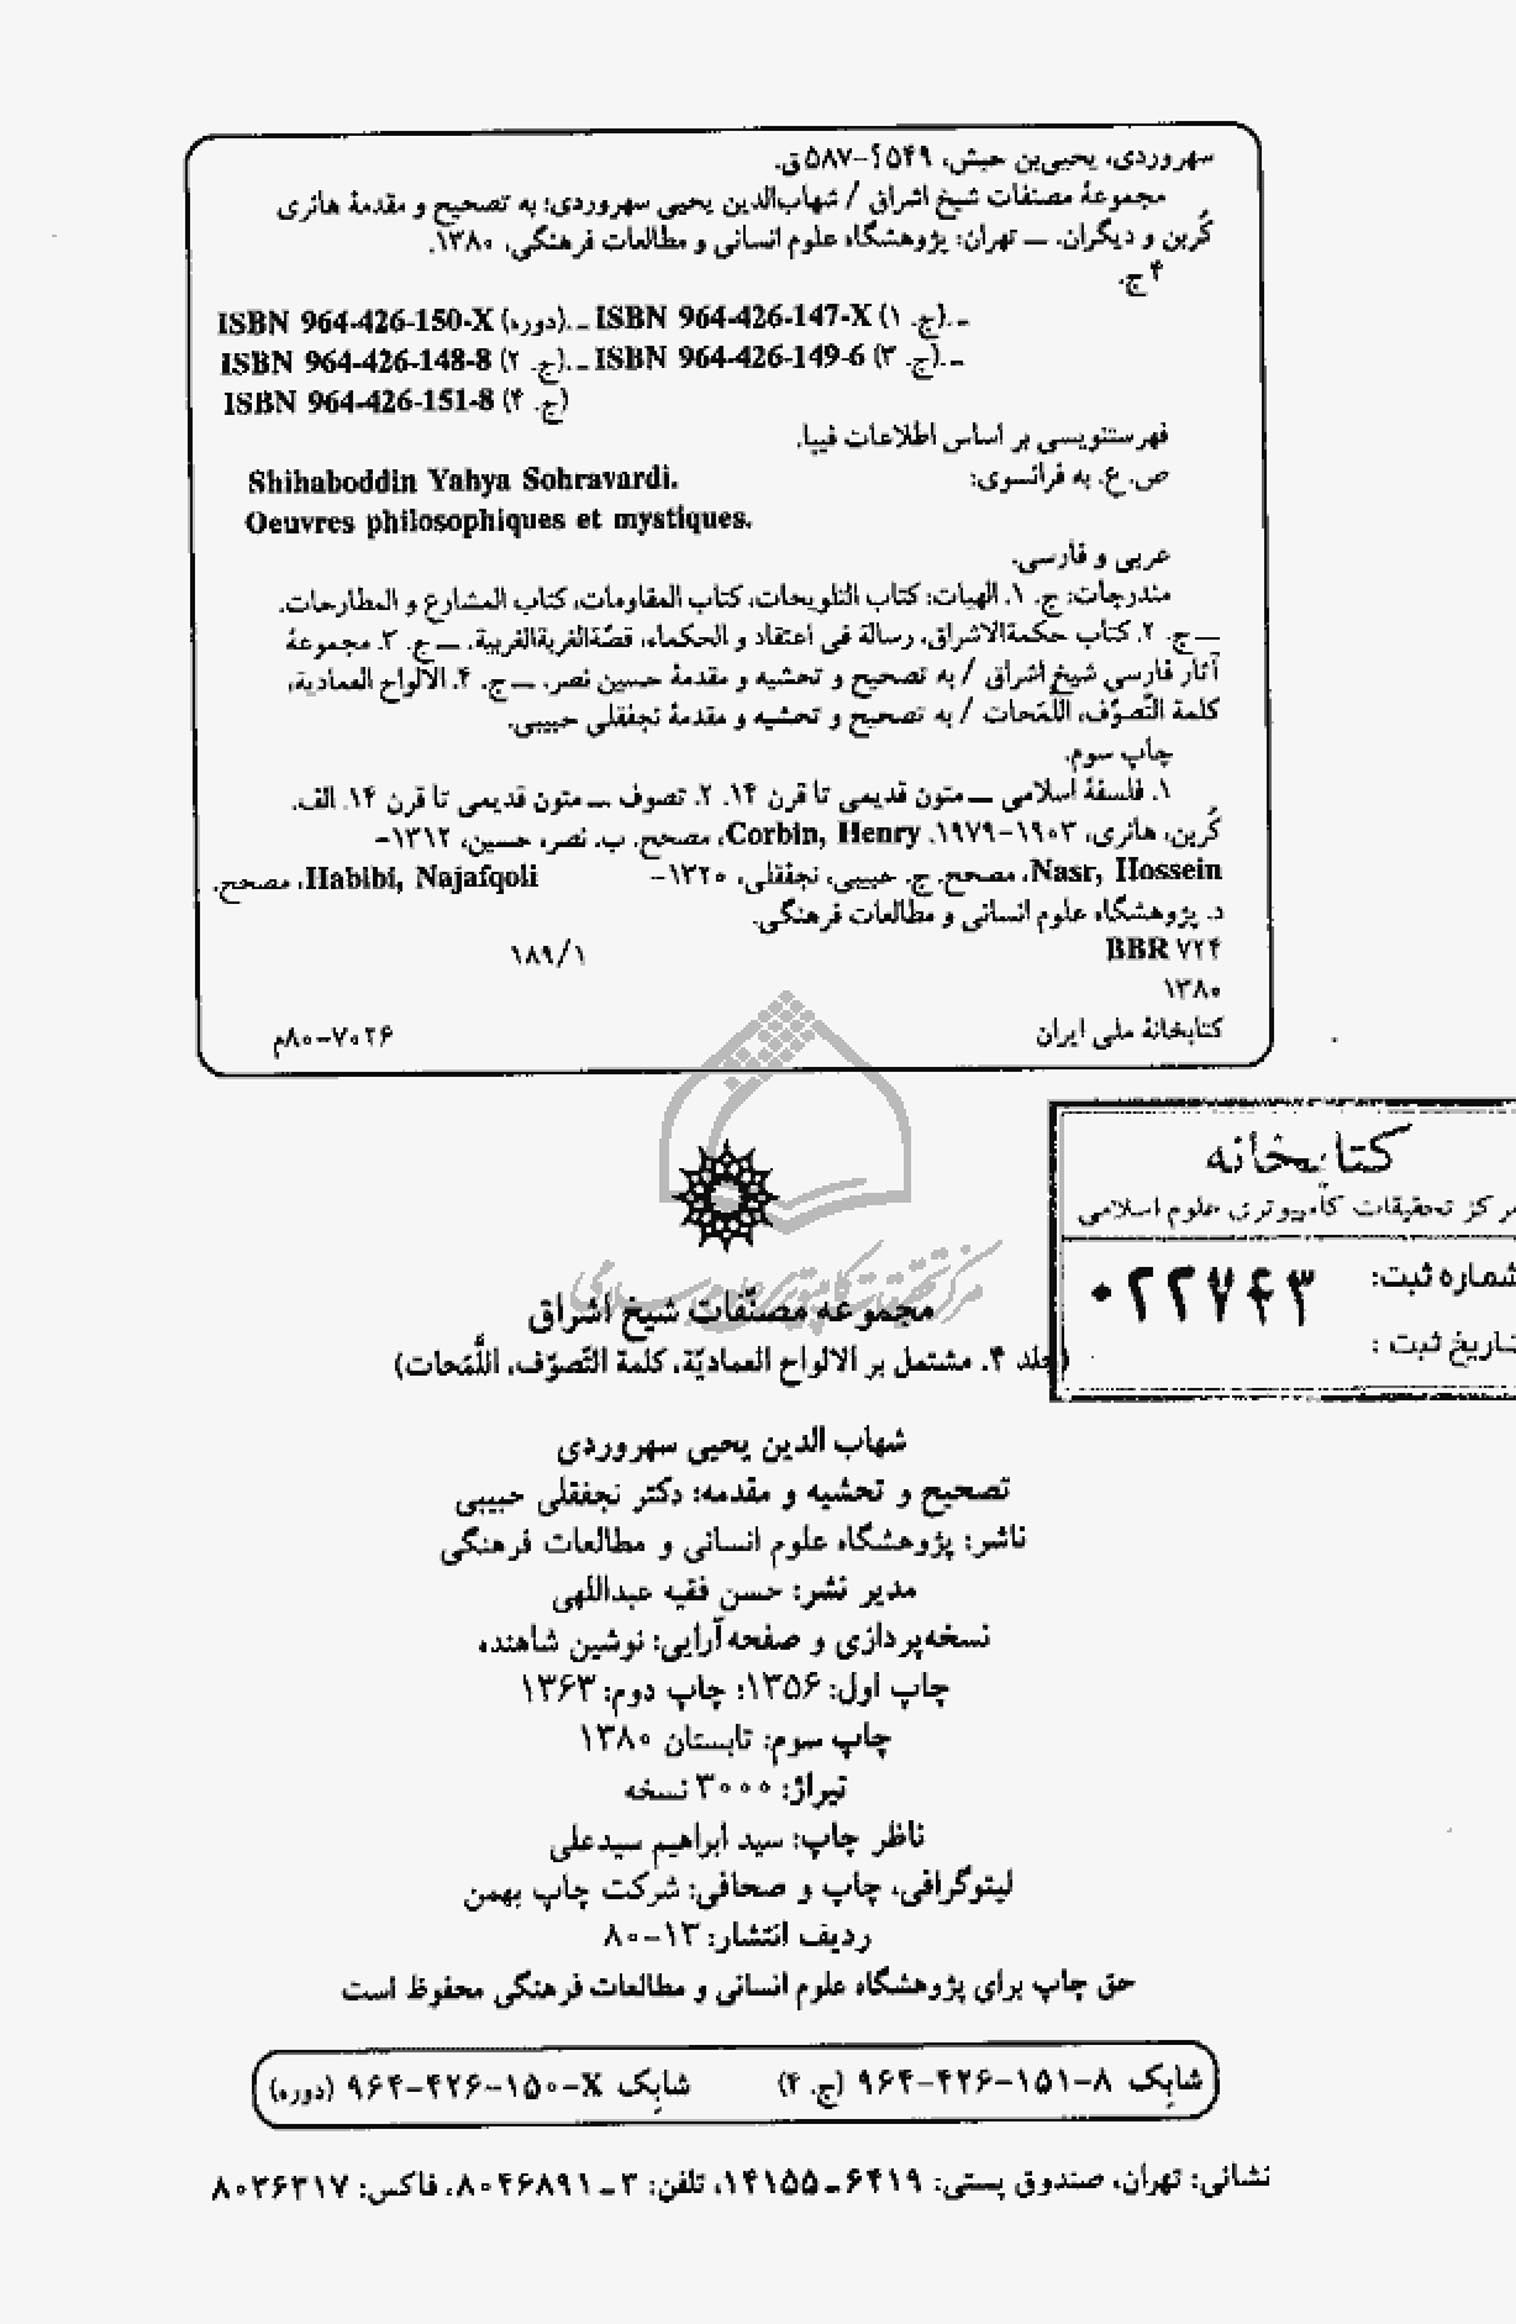 سهروردی، یحیی‌بن حبش، ۵۴۹؟-۵۸۷ق.
مجموعهٔ مصنفات شیخ اشراق / شهاب‌الدین یحیی سهروردی؛ به تصحیح و مقدمهٔ هانری
کُربن و دیگران. ــ تهران: پژوهشگاه علوم انسانی و مطالعات فرهنگی، ۱۳۸۰.
۴ ج.
ISBN 964-426-150-X (دوره).ـ ISBN 964-426-147-X (ج. ۱).ـ
ISBN 964-426-148-8 (ج. ۲).ـ ISBN 964-426-149-6 (ج. ۳).ـ
ISBN 964-426-151-8 (ج. ۴)
فهرستنویسی بر اساس اطلاعات فیپا.
ص. ع. به فرانسوی: Shihaboddin Yahya Sohravardi.
Oeuvres philosophiques et mystiques.
عربی و فارسی.
مندرجات: ج. ۱. الهیات: کتاب التلویحات، کتاب المقاومات، کتاب المشارع و المطارحات.
ــ ج. ۲. کتاب حکمةالاشراق، رسالة فی اعتقاد و الحکماء، قصّةالغربةالغربیة. ــ ج. ۳. مجموعهٔ
آثار فارسی شیخ اشراق / به تصحیح و تحشیه و مقدمهٔ حسین نصر. ــ ج. ۴. الالواح العمادیة،
کلمة التّصوّف، اللّمَحات / به تصحیح و تحشیه و مقدمهٔ نجفقلی حبیبی.
چاپ سوم.
۱. فلسفهٔ اسلامی ــ متون قدیمی تا قرن ۱۴. ۲. تصوف ــ متون قدیمی تا قرن ۱۴. الف.
کُربن، هانری، ۱۹۰۳-۱۹۷۹. Corbin, Henry، مصحح. ب. نصر، حسین، ۱۳۱۲-
Nasr, Hossein، مصحح. ج. حبیبی، نجفقلی، ۱۳۲۰- Habibi, Najafqoli، مصحح.
د. پژوهشگاه علوم انسانی و مطالعات فرهنگی.
BBR ۷۲۴ ۱۸۹/۱
۱۳۸۰
کتابخانهٔ ملی ایران ۷۰۲۶-۸۰م
کتابخانه
مرکز تحقیقات کامپیوتری علوم اسلامی
شماره ثبت: ۰۲۲۷۶۳
تاریخ ثبت :
مرکز تحقیقات کامپیوتری علوم اسلامی
مجموعه مصنّفات شیخ اشراق
(جلد ۴. مشتمل بر الالواح العمادیّة، کلمة التّصوّف، اللّمَحات)
شهاب الدین یحیی سهروردی
تصحیح و تحشیه و مقدمه: دکتر نجفقلی حبیبی
ناشر: پژوهشگاه علوم انسانی و مطالعات فرهنگی
مدیر نشر: حسن فقیه عبداللهی
نسخه‌پردازی و صفحه‌آرایی: نوشین شاهنده
چاپ اول: ۱۳۵۶؛ چاپ دوم: ۱۳۶۳
چاپ سوم: تابستان ۱۳۸۰
تیراژ: ۳۰۰۰ نسخه
ناظر چاپ: سید ابراهیم سیدعلی
لیتوگرافی، چاپ و صحافی: شرکت چاپ بهمن
ردیف انتشار: ۱۳-۸۰
حق چاپ برای پژوهشگاه علوم انسانی و مطالعات فرهنگی محفوظ است
شابک ۸-۱۵۱-۴۲۶-۹۶۴ (ج. ۴) شابک X-۱۵۰-۴۲۶-۹۶۴ (دوره)
نشانی: تهران، صندوق پستی: ۶۴۱۹ـ۱۴۱۵۵، تلفن: ۳ـ۸۰۴۶۸۹۱، فاکس: ۸۰۳۶۳۱۷